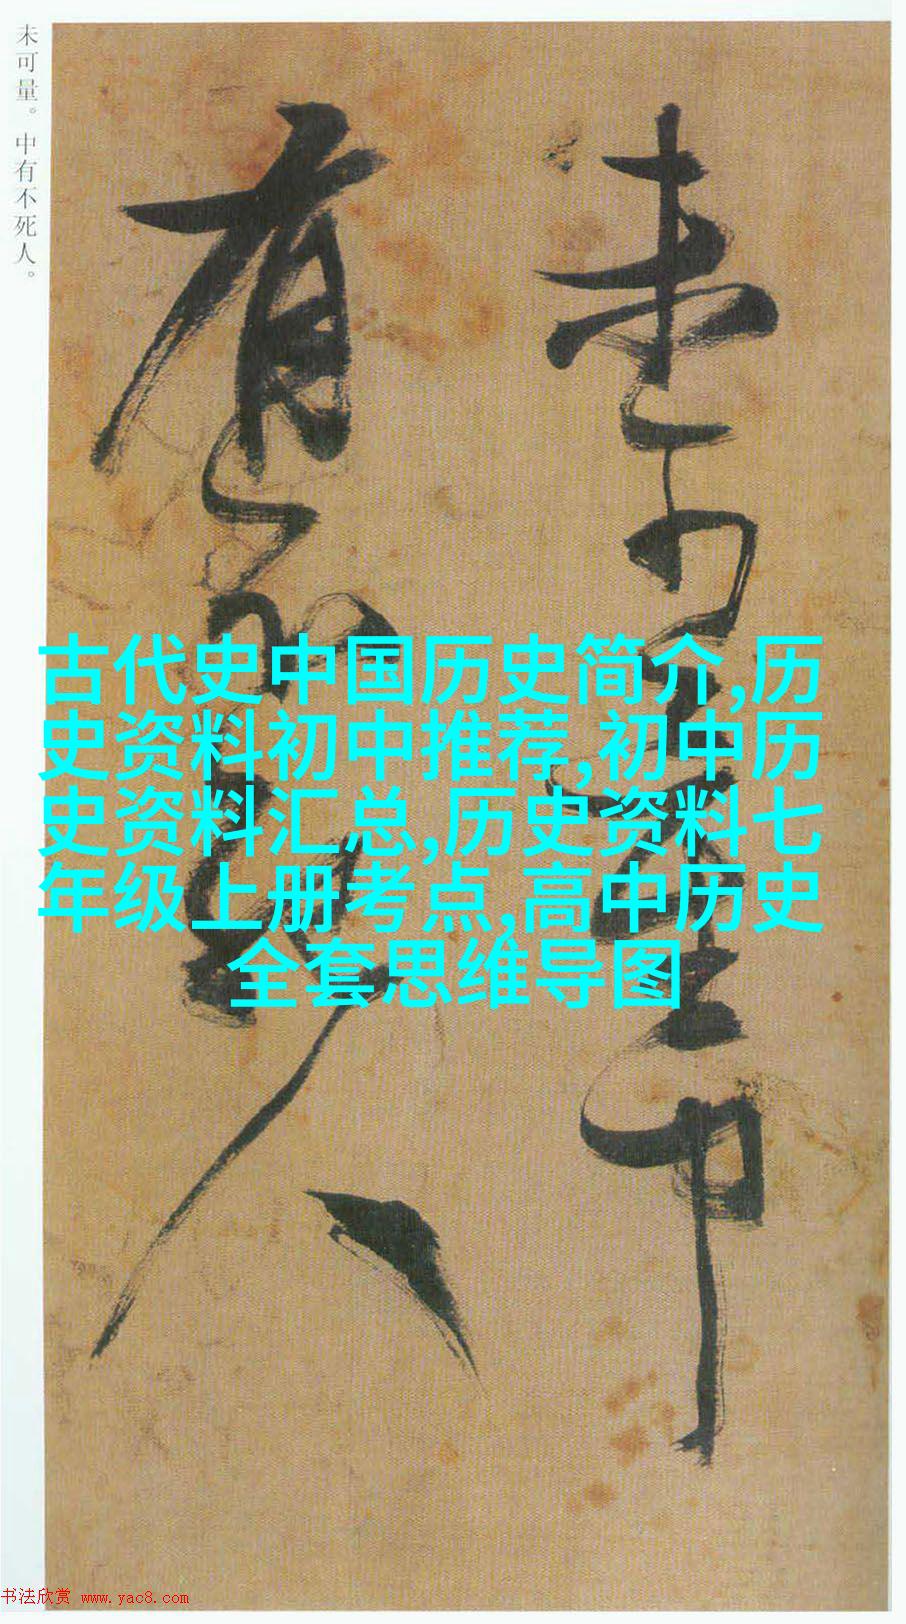 未可量。中有不死人。
未可量中
有不死人
古代史中国历史简介,历
史资料初中推荐,初中历
史资料汇总,历史资料七
年级上册考点,高中历史
全套思维导图
书法欣赏 www.yac8.com